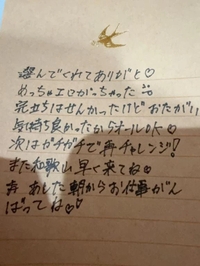 選んでくれてありがと♡
めっちゃエロがっちゃった
先立ちはせんかったけどおたがい
気持ち良かったからオールOK♡
次はガチガチで再チャレンジ!
また和歌山早く来てね♡
あしたも朝からお仕事がん
ばってね♡